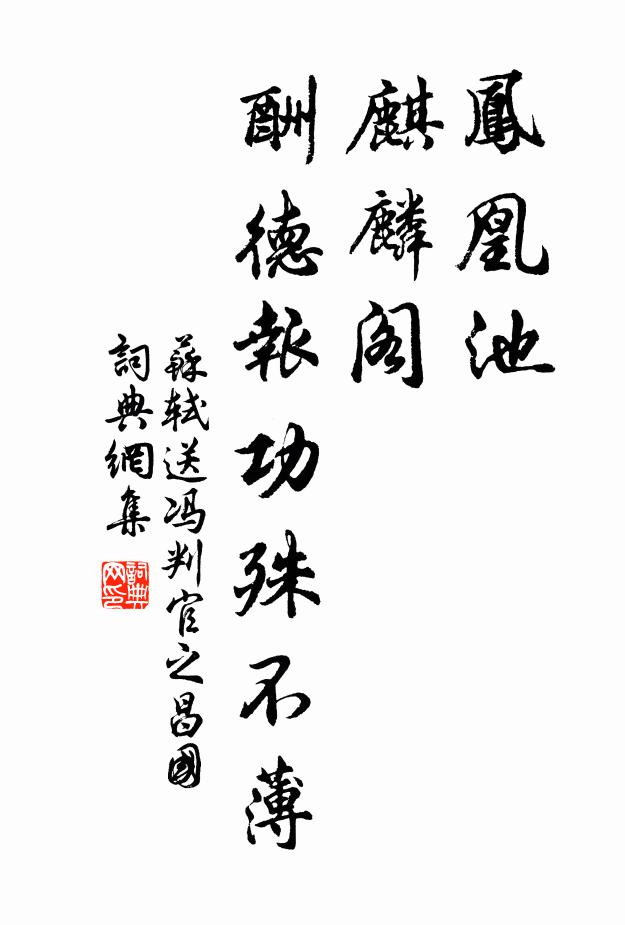 鳳凰池
麒麟閣
酬德報功殊不薄
蘇軾送馮判官之昌國
詞典網集
詞典
网印